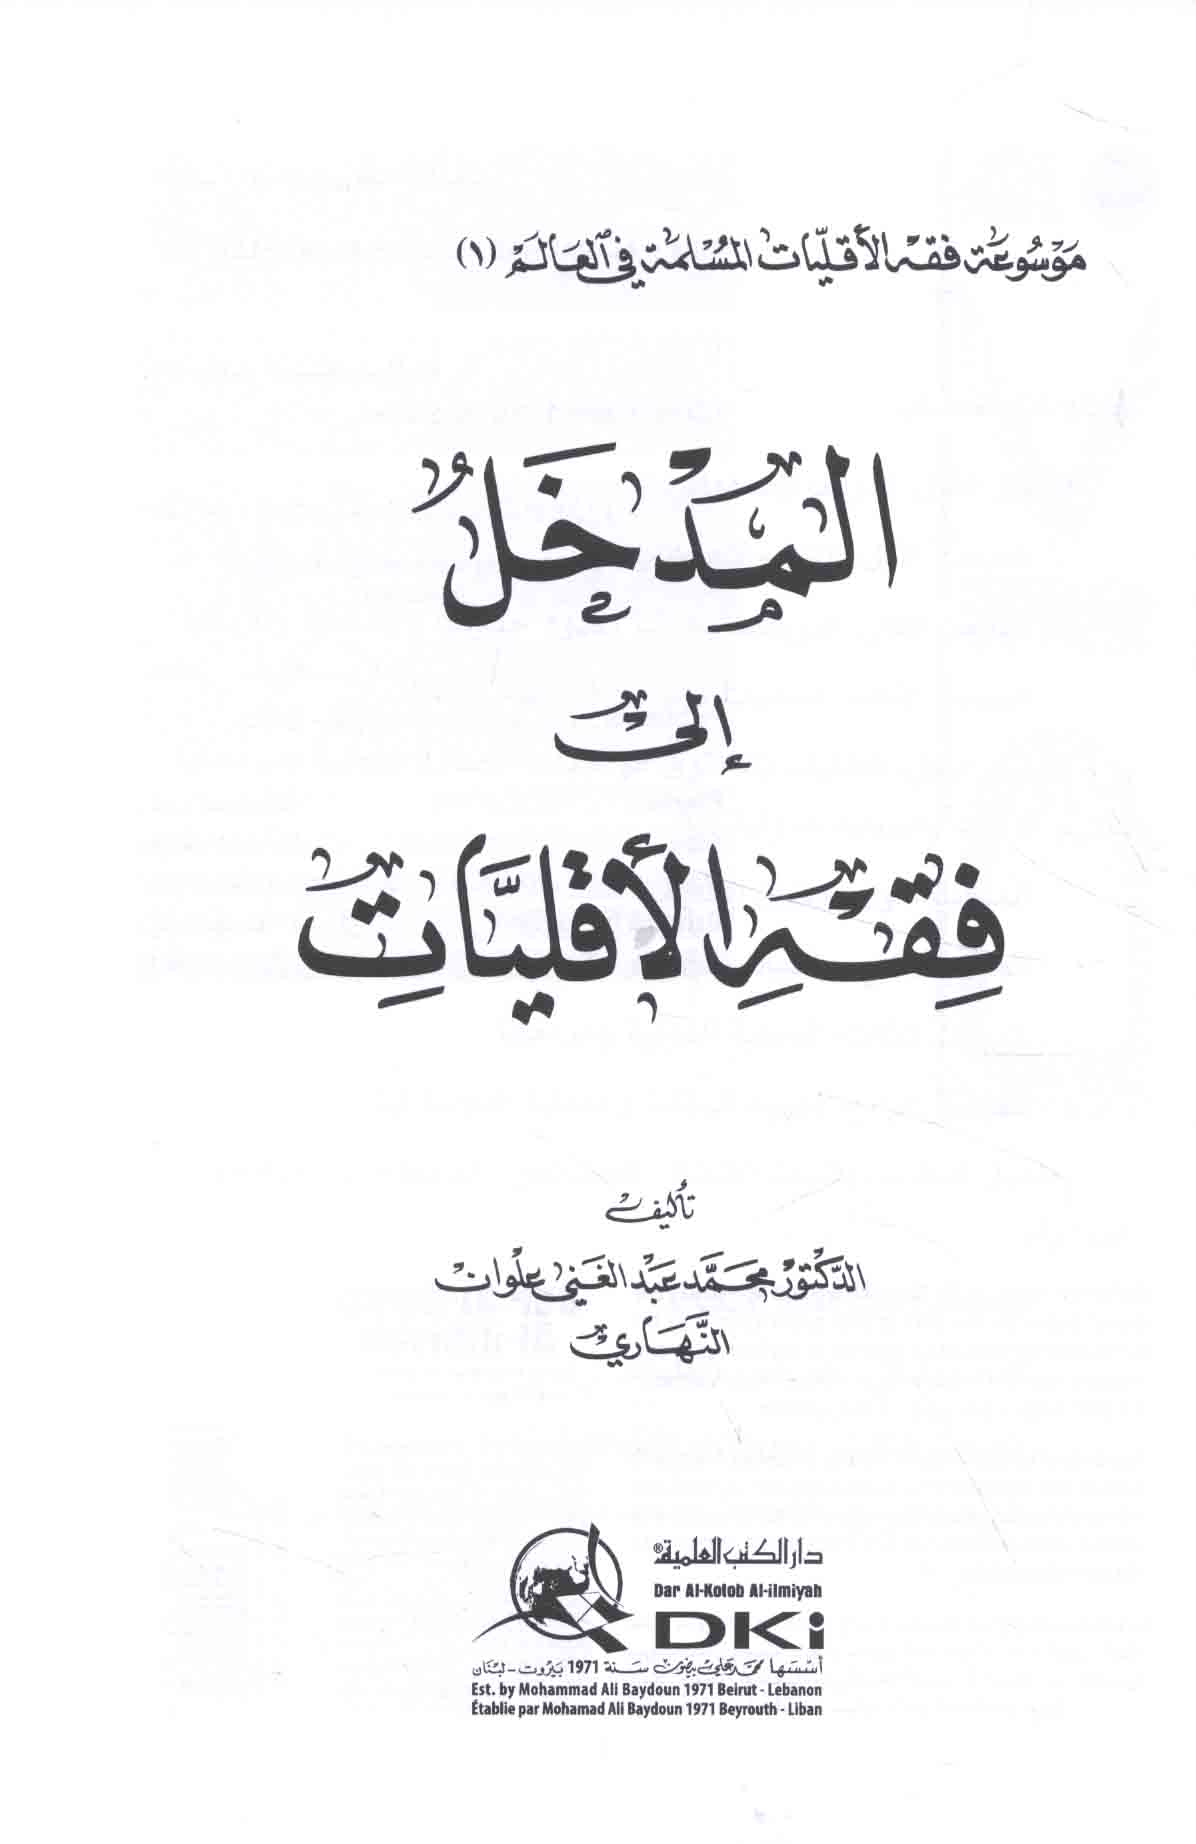 مَوْسُوعَة فقه الأقليّات المُسْلمة في العالم (١)
المَدْخَلُ
إلى
فِقْهِ الأَقَلِيَّاتِ
تأليف
الدّكتور محمّد عبد الغني علوان
النَّهَاري
دار الكتب العلمية®
Dar Al-Kotob Al-ilmiyah
DKi
أسسها محمد علي بيضون سنة 1971 بيروت - لبنان
Est. by Mohammad Ali Baydoun 1971 Beirut - Lebanon
Établie par Mohamad Ali Baydoun 1971 Beyrouth - Liban